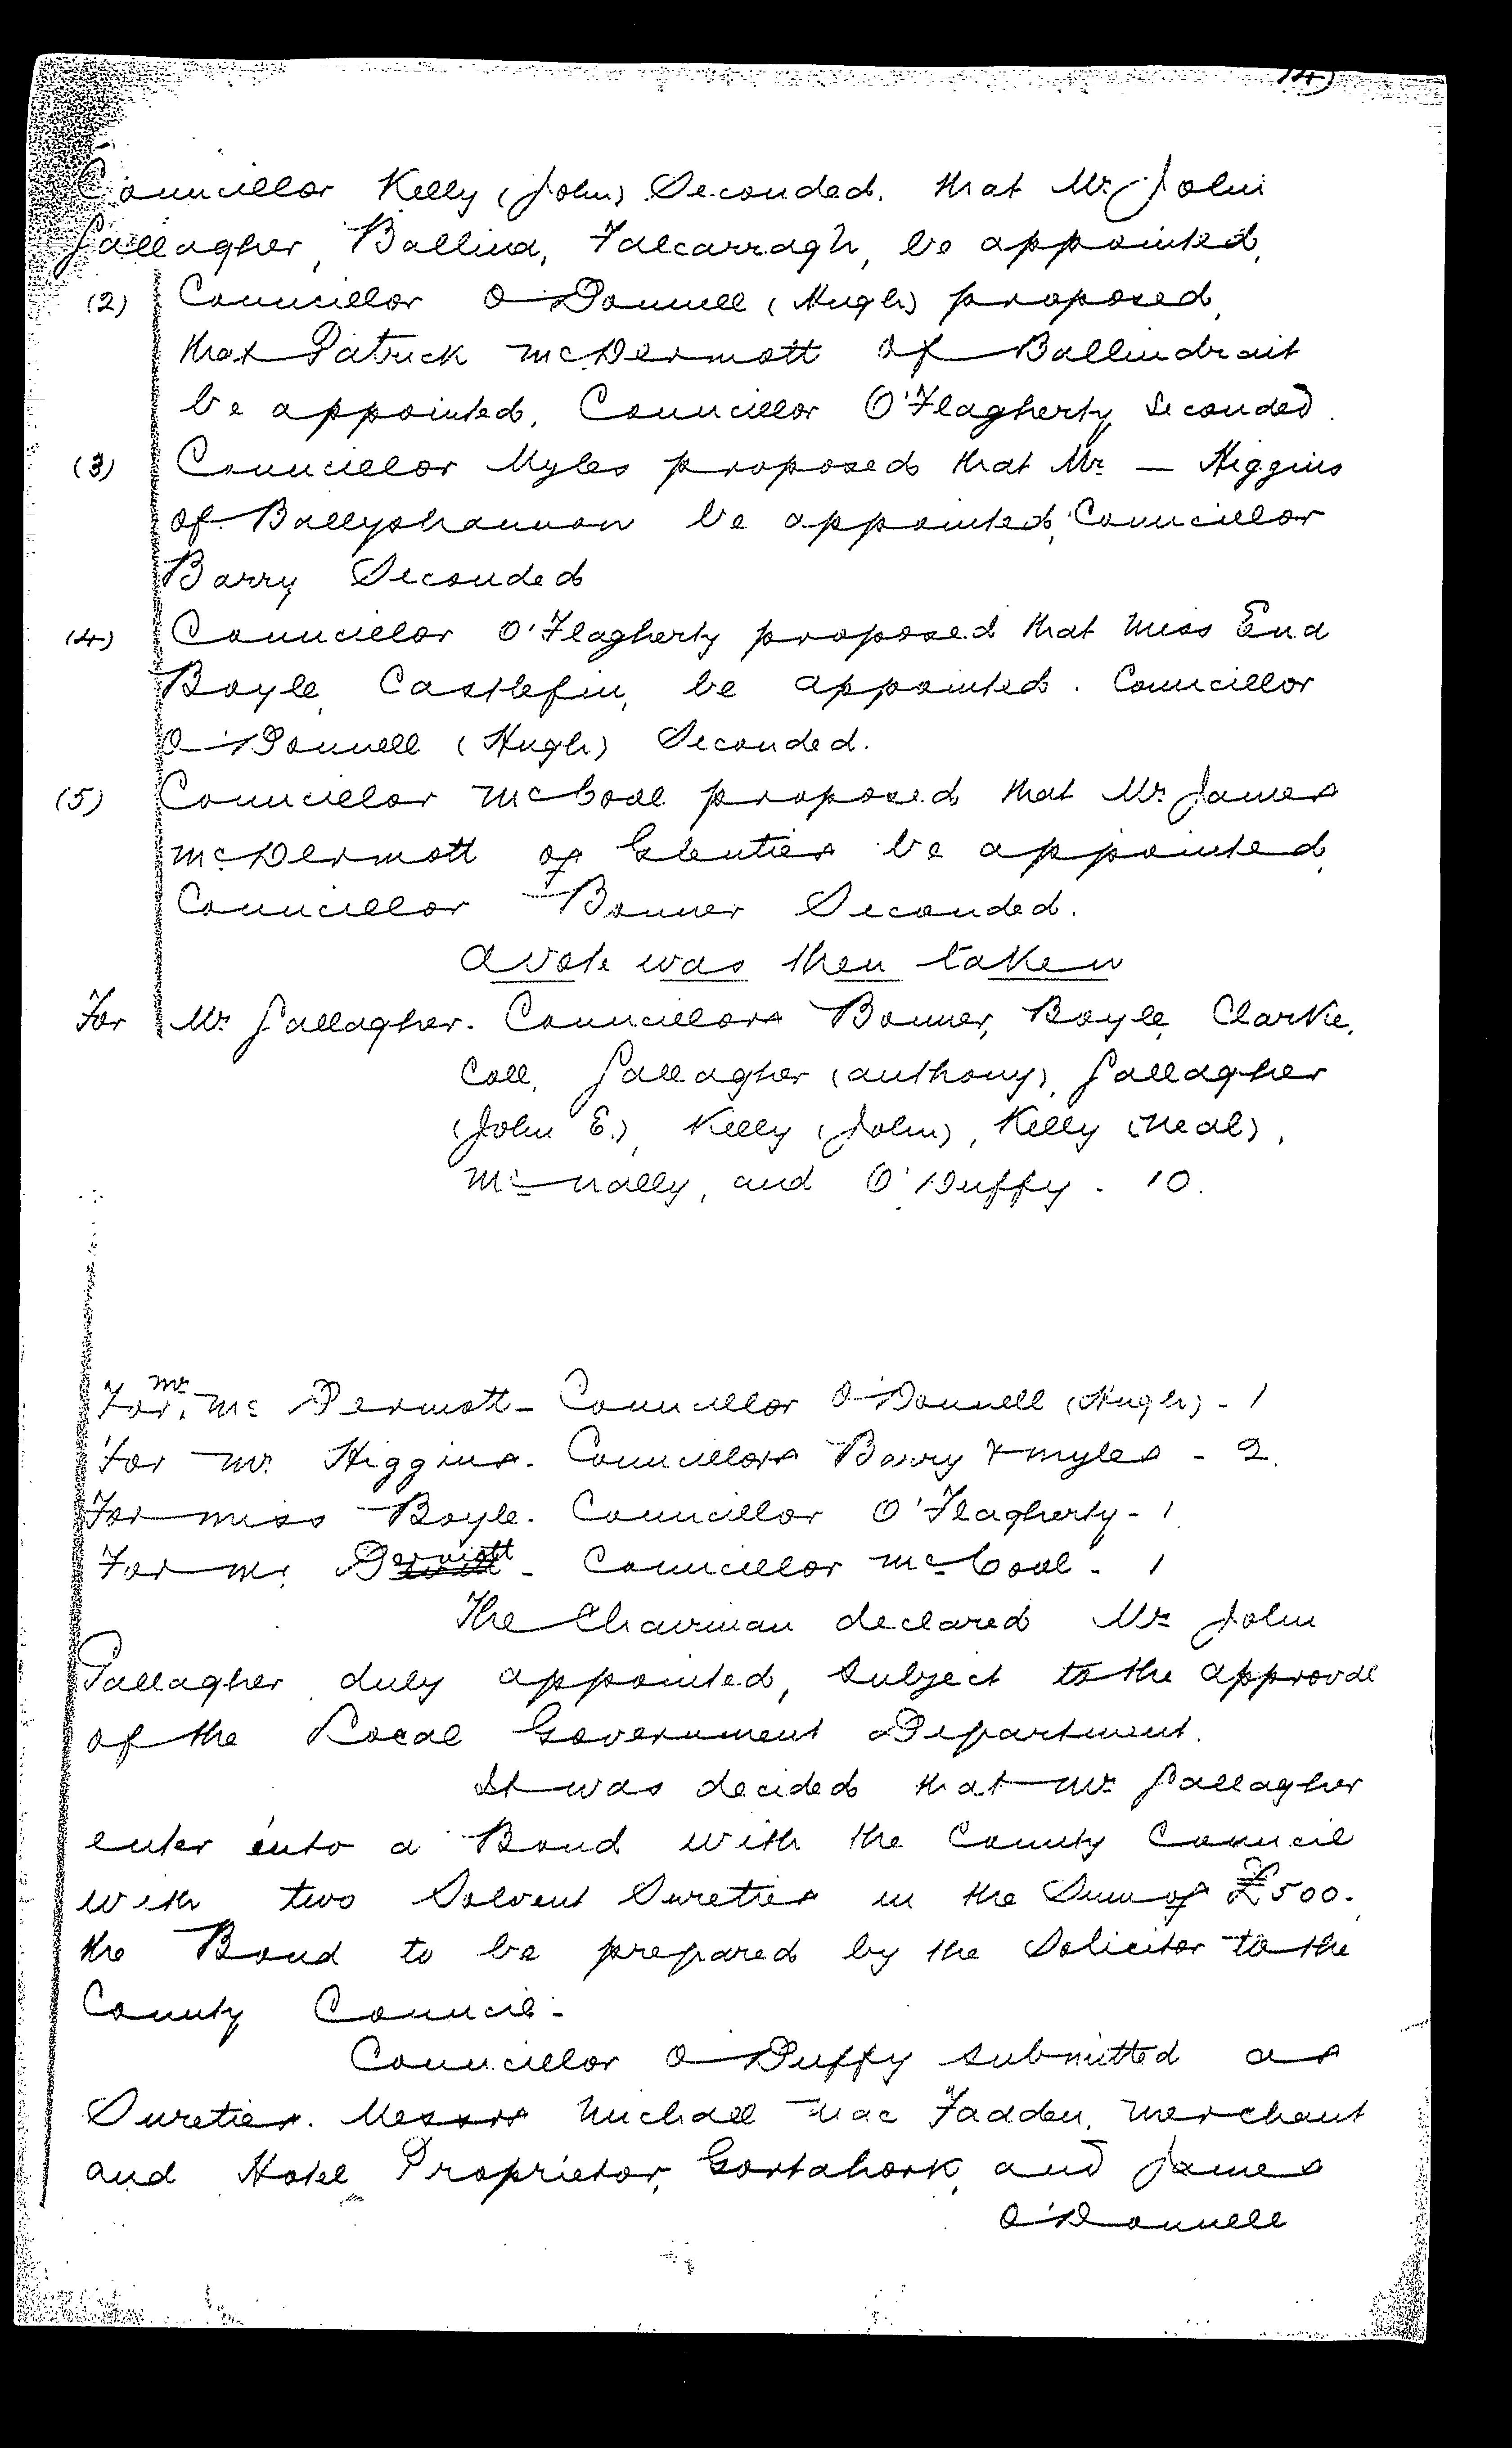 14)
Councillor Kelly (John) Seconded. that Mr John
Gallagher, Ballina, Falcarragh, be appointed,
(2) Councillor O'Donnell (Hugh) proposed,
that Patrick McDermott of Ballindrait
be appointed, Councillor O'Flagherty Seconded.
(3) Councillor Myles proposed that Mr — Higgins
of Ballyshannon be appointed, Councillor
Barry Seconded
(4) Councillor O'Flagherty proposed that Miss Ena
Boyle, Castlefin, be appointed. Councillor
O'Donnell (Hugh) Seconded.
(5) Councillor McCool proposed that Mr James
McDermott of Glenties be appointed,
Councillor Bonner Seconded.
A vote was then taken
For Mr Gallagher. Councillors Bonner, Boyle, Clarke,
Coll, Gallagher (Anthony), Gallagher
(John E.), Kelly (John), Kelly (Neal),
McNally, and O'Duffy. 10.
For Mr. Mc Dermott - Councillor O'Donnell (Hugh) - 1
For Mr. Higgins. Councillors Barry & Myles - 2.
For Miss Boyle. Councillor O'Flagherty - 1
For Mr. Dermott - Councillor McCool. 1
The Chairman declared Mr John
Gallagher duly appointed, subject to the approval
of the Local Government Department.
It was decided that Mr Gallagher
enter into a Bond with the County Council
with two Solvent Sureties in the Sum of £500.
the Bond to be prepared by the Solicitor to the
County Council.
Councillor O'Duffy submitted as
Sureties. Messrs Michael Mac Fadden, Merchant
and Hotel Proprietor, Gortahork, and James
O'Donnell